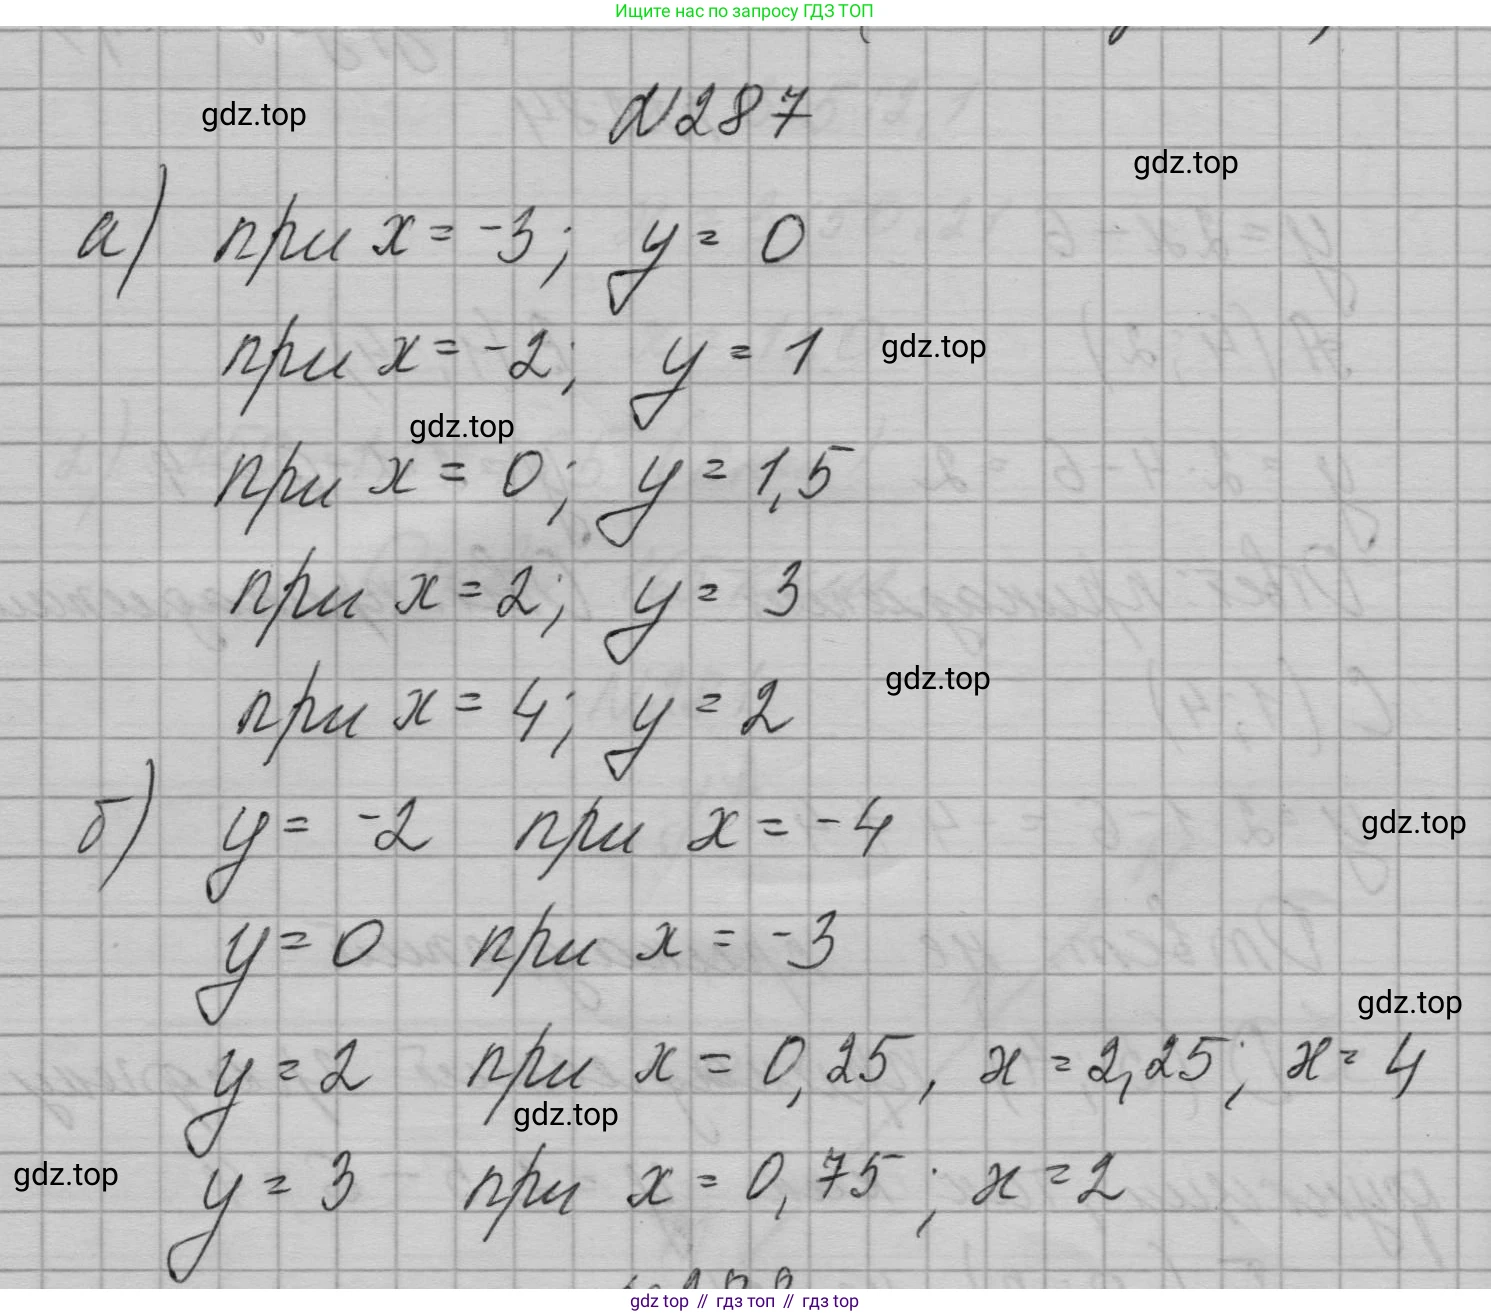 Ищите нас по запросу ГДЗ ТОП
gdz.top
№287
gdz.top
а) при x = -3; y = 0
при x = -2; y = 1
gdz.top
gdz.top
при x = 0; y = 1,5
при x = 2; y = 3
при x = 4; y = 2
gdz.top
б) y = -2 при x = -4
gdz.top
y = 0 при x = -3
gdz.top
y = 2 при x = 0,25, x = 2,25; x = 4
gdz.top
gdz.top
y = 3 при x = 0,75; x = 2
gdz top // гдз топ // гдз top